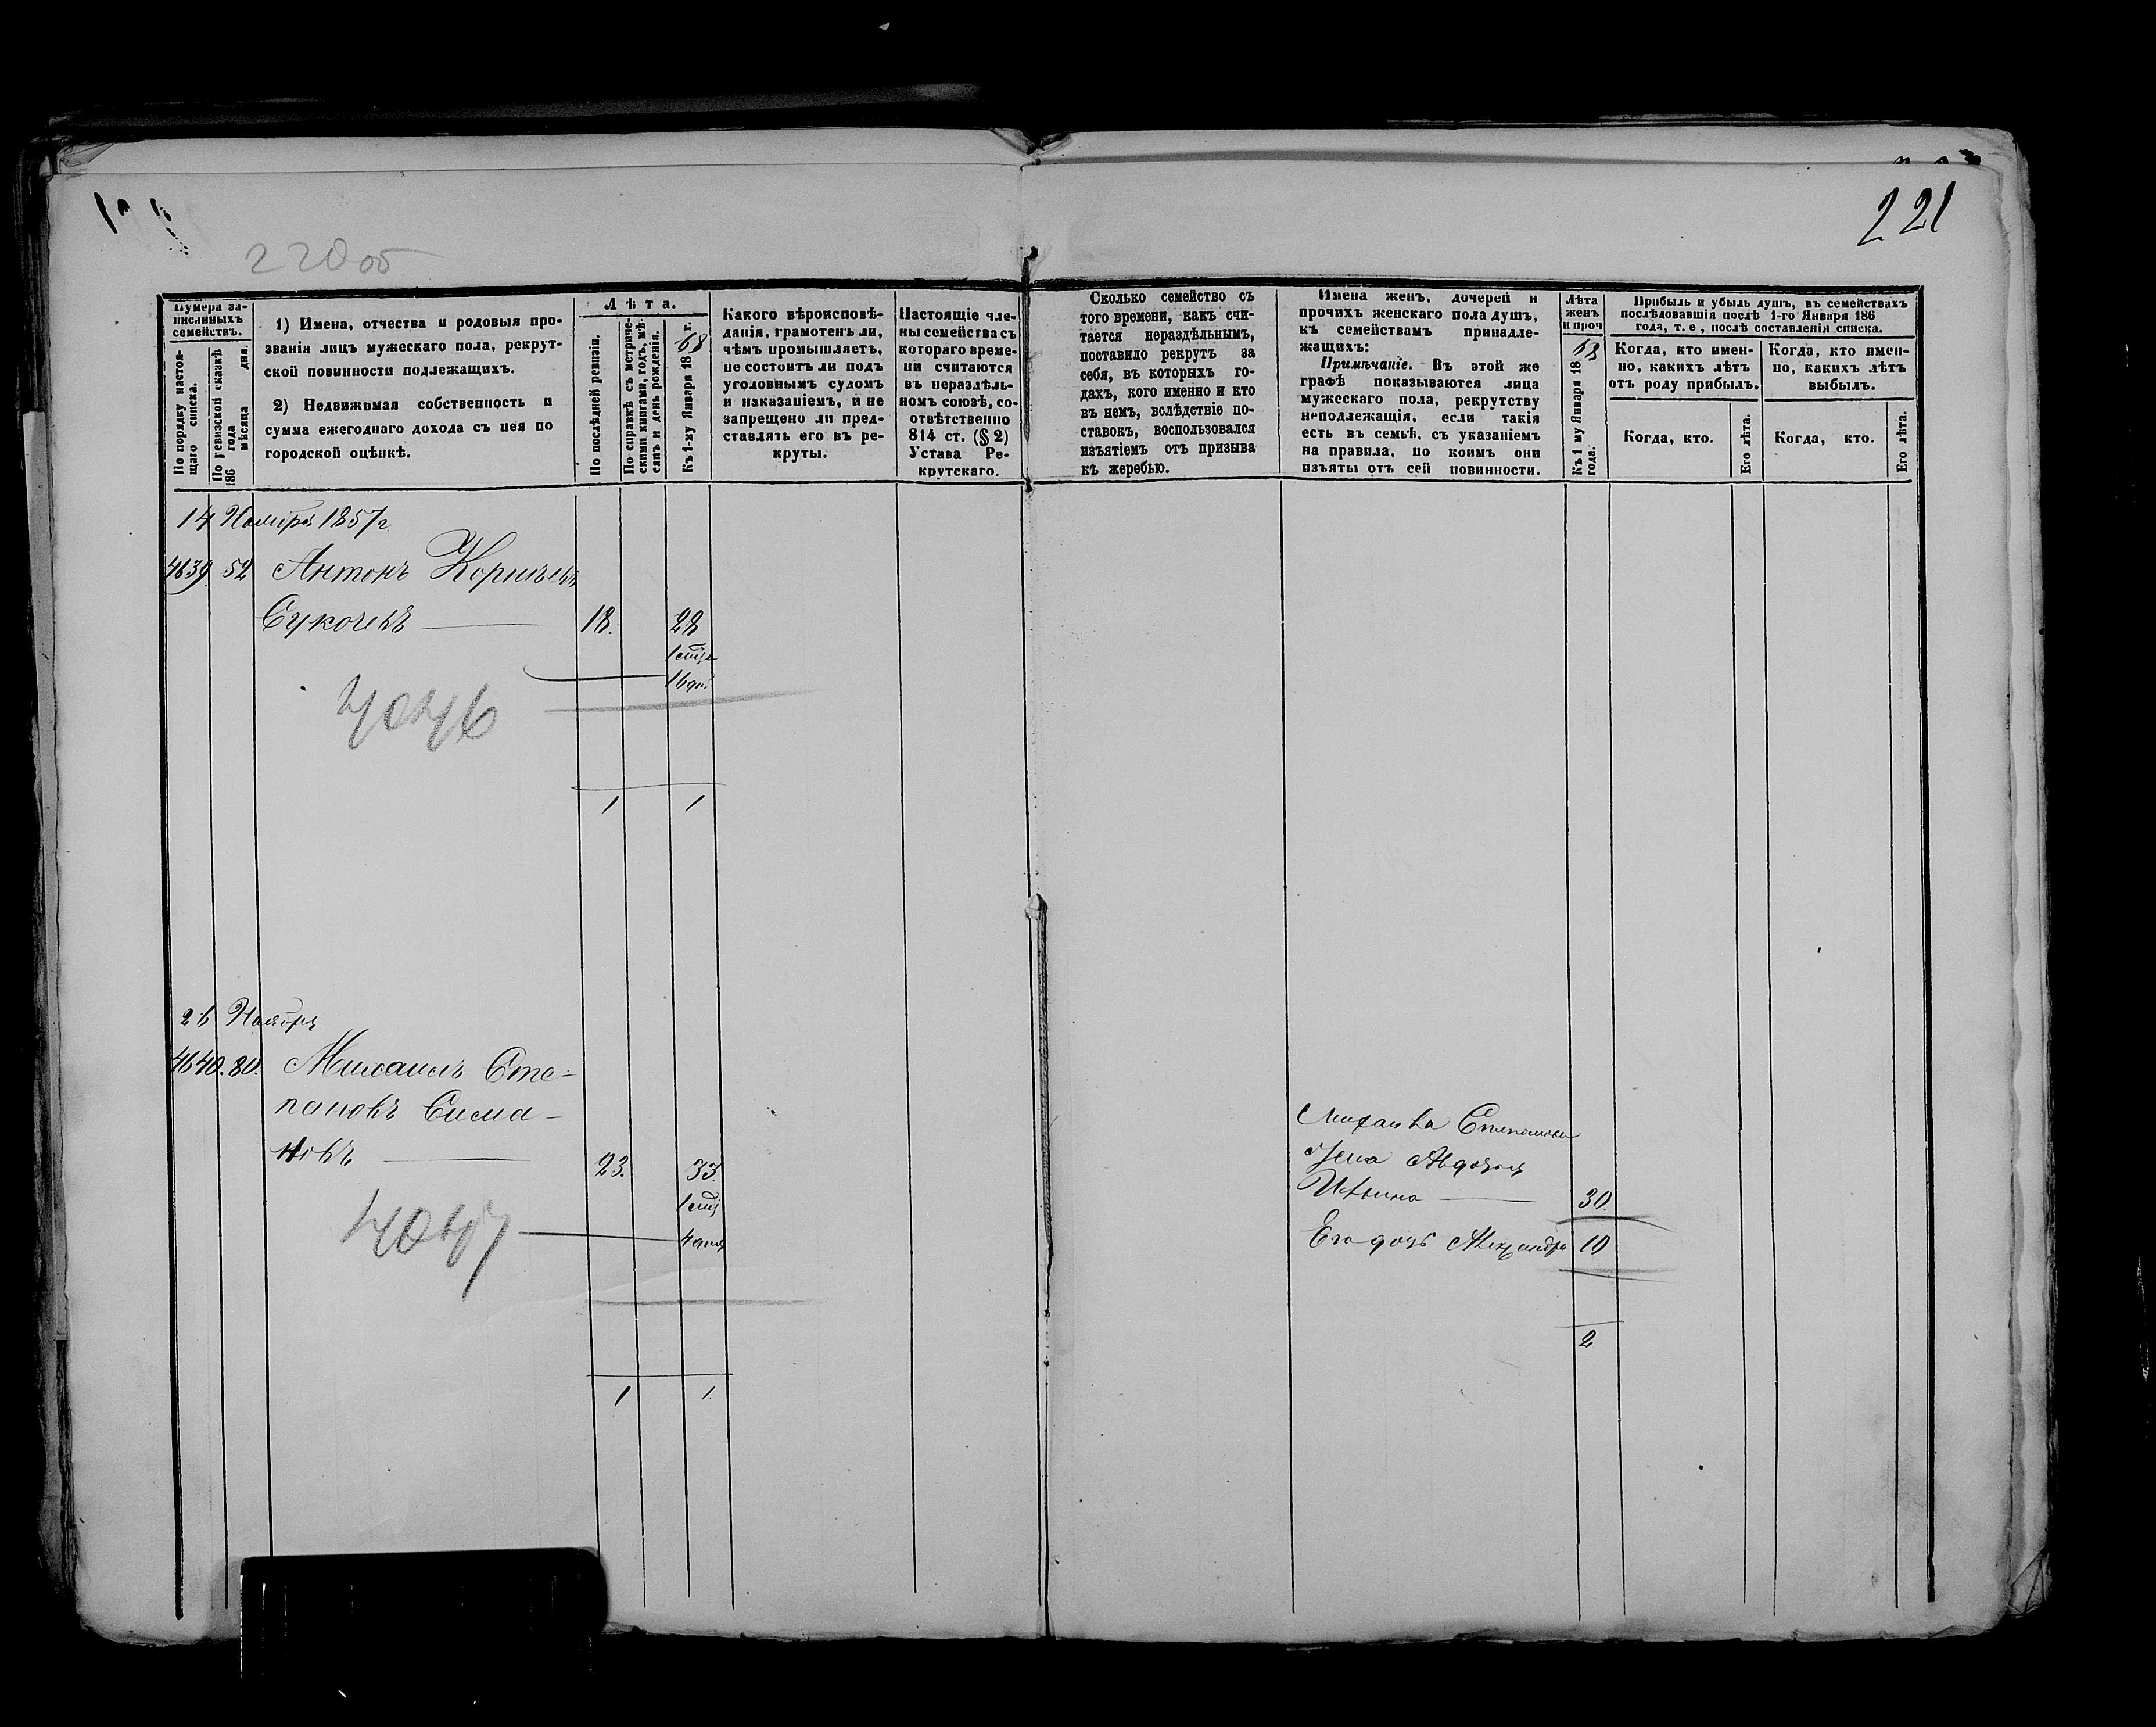 221
220 об
Нумера за-
писанныхъ
семействъ.
По порядку настоя-
щаго списка.
По ревизской сказкѣ
186 года
мѣсяца дня.
1) Имена, отчества и родовыя про-
званія лицъ мужескаго пола, рекрут-
ской повинности подлежащихъ.
2) Недвижимая собственность и
сумма ежегоднаго дохода съ нея по
городской оцѣнкѣ.
Лѣта.
По послѣдней ревизіи.
По справкѣ съ метриче-
скими книгами, годъ, мѣ-
сяцъ и день рожденія.
Къ 1-му Января 1868 г.
Какого вѣроисповѣ-
данія, грамотенъ ли,
чѣмъ промышляетъ,
не состоитъ ли подъ
уголовнымъ судомъ
и наказаніемъ, и не
запрещено ли пред-
ставлять его въ ре-
круты.
Настоящіе чле-
ны семейства съ
котораго време-
ни считаются
въ нераздѣль-
номъ союзѣ, со-
отвѣтственно
814 ст. (§ 2)
Устава Ре-
крутскаго.
Сколько семейство съ
того времени, какъ счи-
тается нераздѣльнымъ,
поставило рекрутъ за
себя, въ которыхъ го-
дахъ, кого именно и кто
въ немъ, вслѣдствіе по-
ставокъ, воспользовался
изъятіемъ отъ призыва
къ жеребью.
Имена женъ, дочерей и
прочихъ женскаго пола душъ,
къ семействамъ принадле-
жащихъ:
Примѣчаніе. Въ этой же
графѣ показываются лица
мужескаго пола, рекрутству
неподлежащія, если такія
есть въ семьѣ, съ указаніемъ
на правила, по коимъ они
изъяты отъ сей повинности.
Лѣта
женъ
и проч
Къ 1 му Января 1868
года.
Прибыль и убыль душъ, въ семействахъ
послѣдовавшія послѣ 1-го Января 186
года, т. е., послѣ составленія списка.
Когда, кто имен-
но, какихъ лѣтъ
отъ роду прибылъ.
Когда, кто имен-
но, какихъ лѣтъ
выбылъ.
Когда, кто.
Его лѣта.
Когда, кто.
Его лѣта.
14 Ноября 1857 г.
4639. 52 Антонъ
Сукочевъ 18. 28
1 мѣс.
16 дн.
4046
1 1
26 Ноября
4640. 80. Михаилъ Сте-
пановъ Сима-
новъ 23. 33.
1 мѣс
4 дня
4047
1 1.
Михаила Степанова
Жена Авдотья
30.
Его дочь Александра 10
2